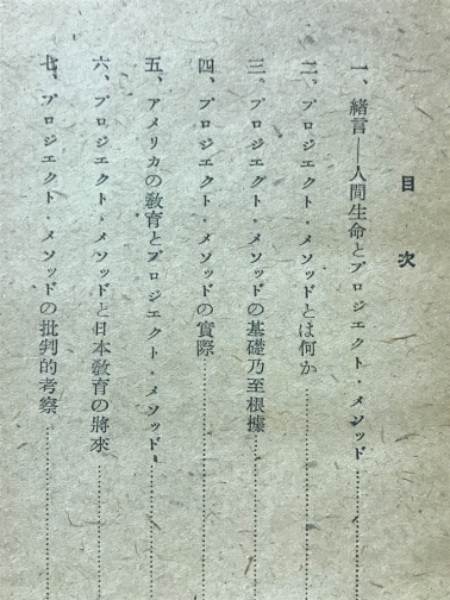 目次
一、緒言―人間生命とプロジエクト・メソッド
二、プロジエクト・メソッドとは何か
三、プロジエクト・メソッドの基礎乃至根據
四、プロジエクト・メソッドの實際
五、アメリカの敎育とプロジエクト・メソッド
六、プロジエクト・メソッドと日本敎育の將來
七、プロジエクト・メソッドの批判的考察